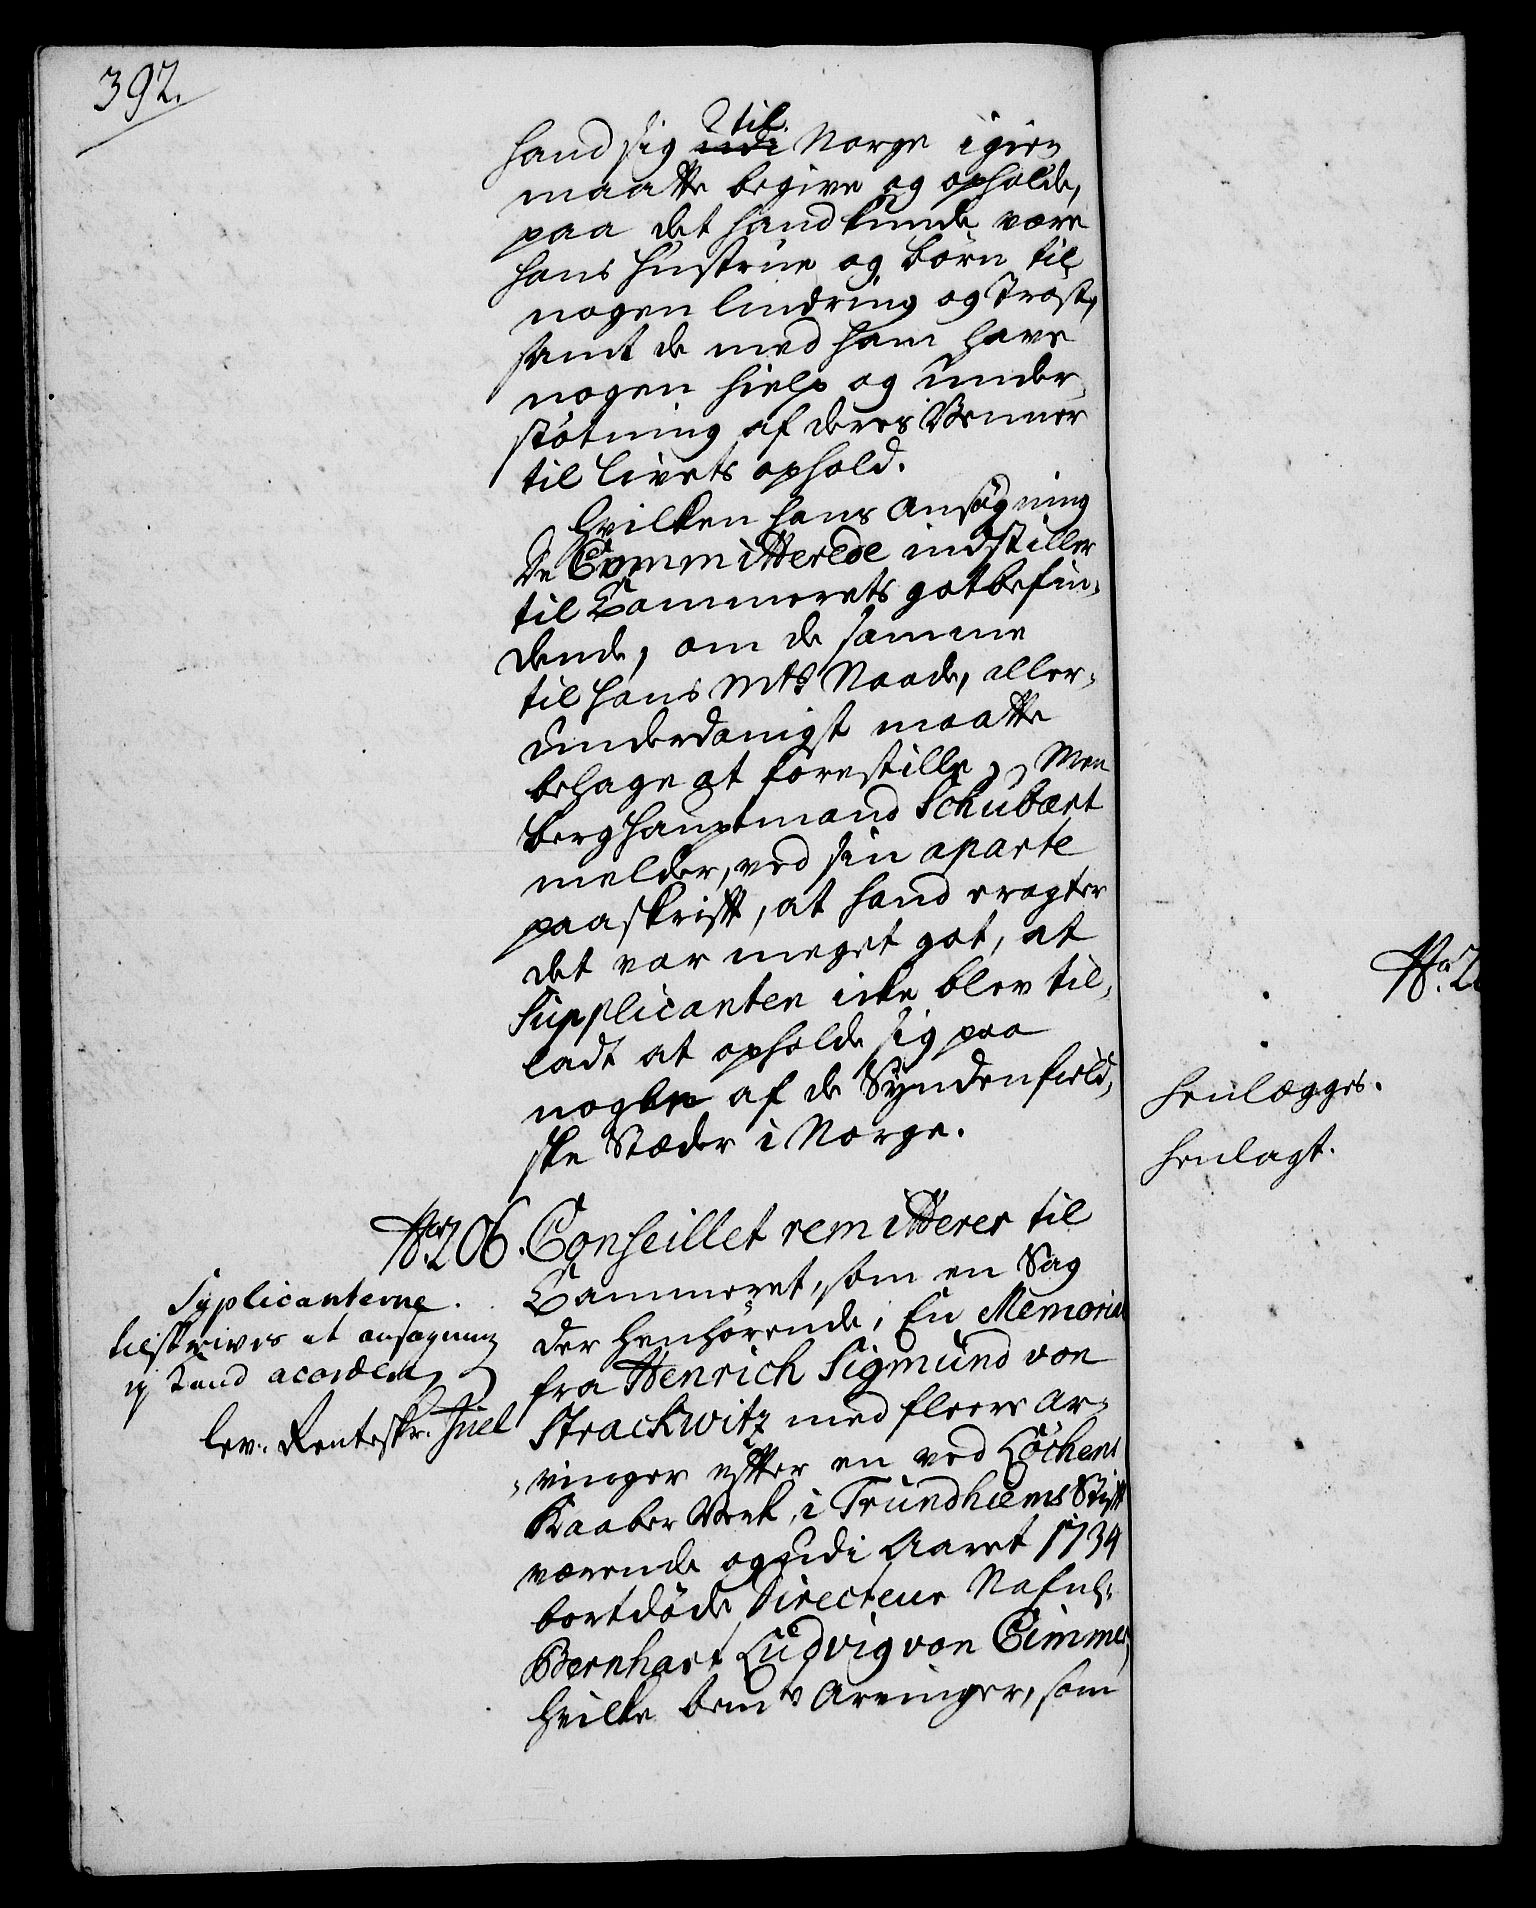 392.
hand sig udi til Norge igien
maatte begive og opholde,
paa det hand kunde være
hans Hustrue og börn til
nogen lindring og Tröst,
samt de med ham have
nogen hielp og under-
stötning af deres Venner
til livets ophold.
Hvilken hans ansögning
De Committerede indstiller
til Cammerets gotbefin-
dende, om de samme
til Hans Mts Naade, aller-
underdanigst maatte
behage at forestille, Men
berghauptmand Schubart
melder, ved sin aparte
paaskrifft, at hand eragter
det var meget got, at
Supplicanten icke blev til-
ladt at opholde sig paa
nogen af de Syndenfield-
ske Stæder i Norge.
No. 206. Conseillet remitterer til
Cammeret, som en Sag
der henhörende, En Memorial
fra Henrich Sigmund von
Strackwitz med fleere Ar-
vinger effter en ved Löckens
Kaaber Verk, i Trundhiems Stifft
værende og udi Aaret 1734
bortdöde Directeur Nafnl.
Bernhart Ludvig von Cimmer,
hvilke bemte Arvinger, som
Suplicanterne
tilskrives at ansögning
ej kand acorderes
lev. Renteskr. Juel
No. 2
henlægges.
henlagt.